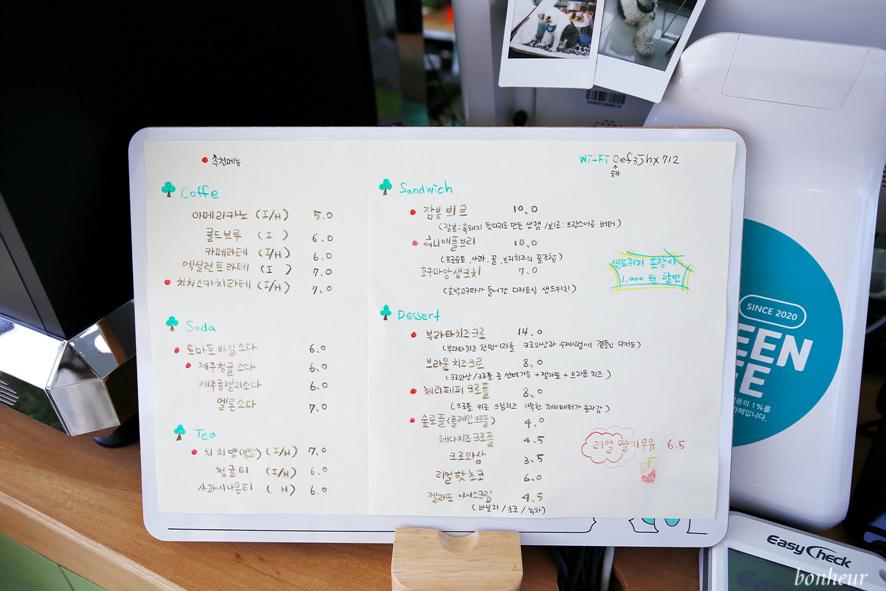 추천메뉴
Coffe
아메리카노 (I/H) 5.0
콜드브루 (I ) 6.0
카페라테 (I/H) 6.0
엑설런트라테 (I ) 7.0
치치스카치라테 (I/H) 7.0
Soda
토마토바질소다 6.0
제주청귤소다 6.0
제주귤젤리소다 6.0
멜론소다 7.0
Tea
(I/H) 7.0
청귤티 (I/H) 6.0
사과시나몬티 ( H) 6.0
Wi-Fi 0ef3jhx712
숫자
Sandwich
잠봉뵈르 10.0
(잠봉:흑돼지 뒷다리로 만든 생햄 /뵈르: 프랑스어로 버터)
허니애플브리 10.0
사과, 꿀, 브리치즈의 꿀조합)
호구마앙생크치 7.0
(호박고구마가 들어간 디저트식 샌드위치)
샌드위치 포장시
1.000원 할인
Dessert
부라타치즈크로 14.0
(부라타치즈 한덩어리를 크로와상과 수제시럽에 곁들인 디저트)
브라운치즈크로 8.0
(크로와상/크로플 중 선택가능 + 젤라또 + 브라운 치즈)
체리페퍼크로플 8.0
(크로플 위로 크림치즈 가득한
숏로플 (플레인크로플) 4.0
체다치즈크로플 4.5
크로와상 3.5
리얼핫초코 6.0
젤라또 아이스크림 4.5
(바닐라/초코/녹차)
리얼 딸기우유 6.5
SINCE 2020
EEN
FE
용의 1%를
카페입니다.
EasyCheck
bonheur